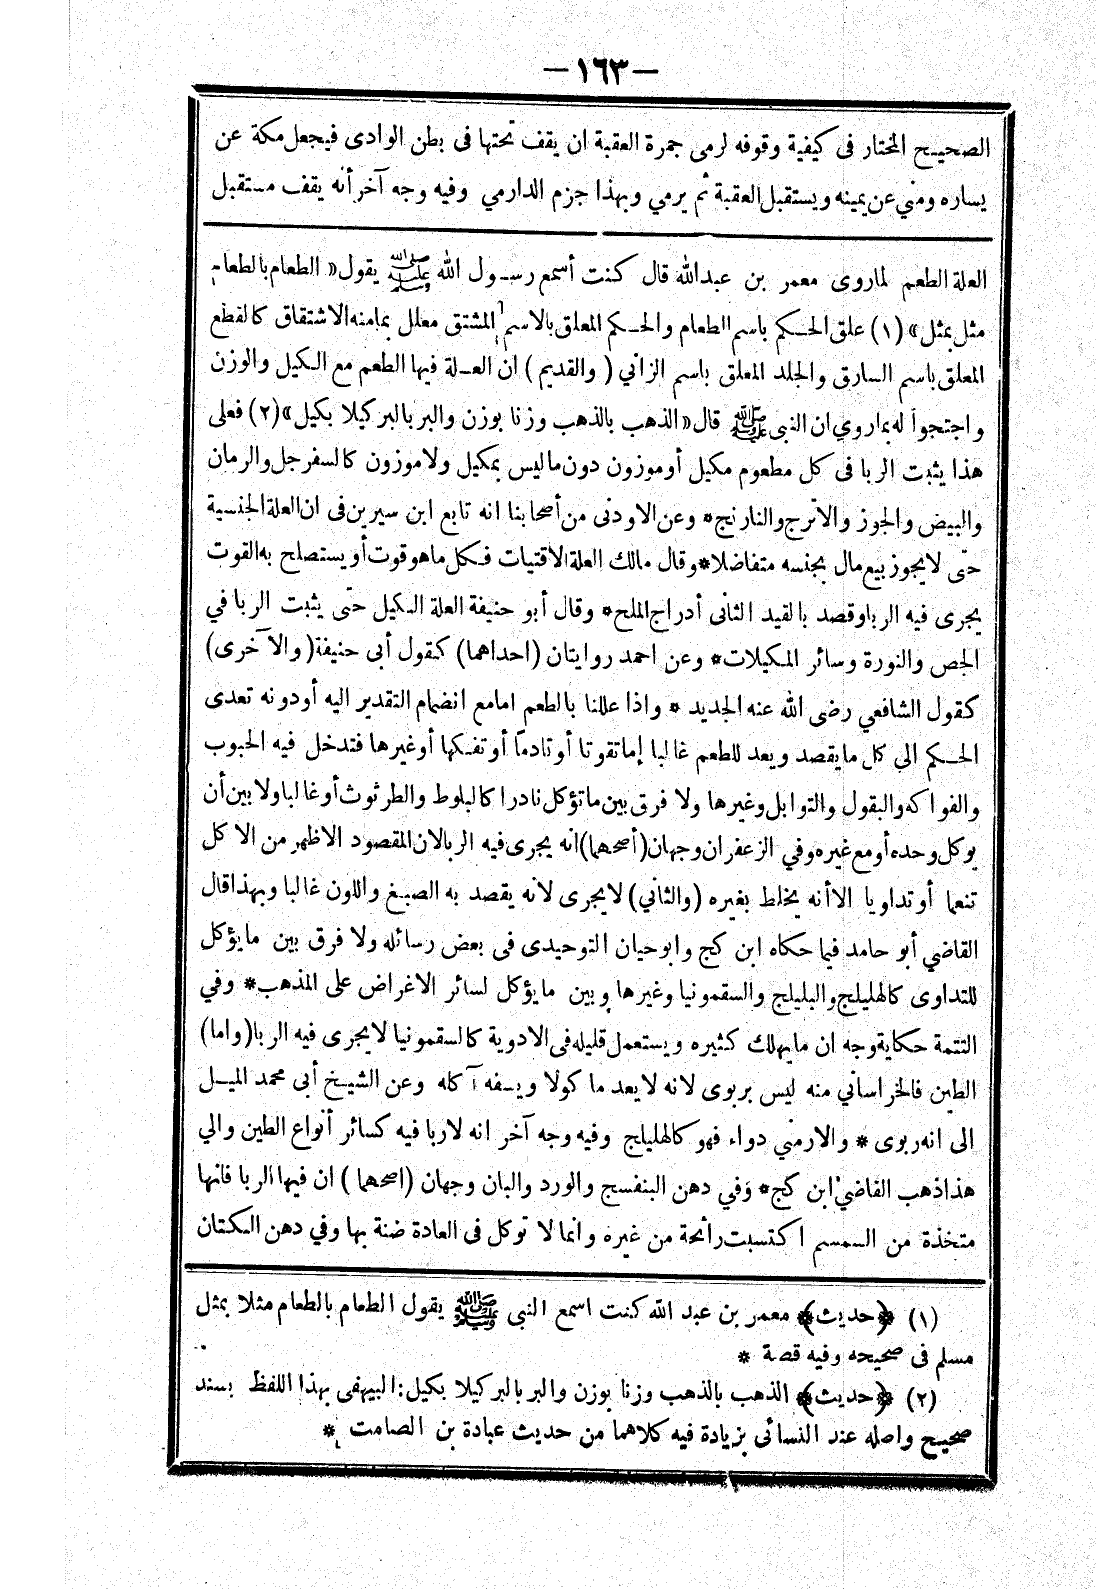 —١٦٣—
الصحيح المختار فى كيفية وقوفه لرمى جمرة العقبة ان يقف تحتها فى بطن الوادى فيجعل مكة عن
يساره ومنى عن يمينه ويستقبل العقبة ثم يرمي وبهذا جزم الدارمي وفيه وجه آخر أنه يقف مستقبل
العلة الطعم لماروى معمر بن عبدالله قال كنت أسمع رسول الله ﷺ يقول «الطعام بالطعام
مثل بمثل» (١) علق الحكم باسم الطعام والحكم المعلق بالاسم المشتق معلل بمامنه الاشتقاق كالقطع
المعلق باسم السارق والجلد المعلق باسم الزاني (والقديم) ان العلة فيها الطعم مع الكيل والوزن
واجتجوا له بماروي ان النبى ﷺ قال «الذهب بالذهب وزنا بوزن والبر بالبر كيلا بكيل» (٢) فعلى
هذا يثبت الربا فى كل مطعوم مكيل أوموزون دون ماليس بمكيل ولاموزون كالسفرجل والرمان
والبيض والجوز والاترج والنارنج* وعن الاودنى من أصحابنا انه تابع ابن سيرين فى ان العلة الجنسية
حتى لايجوز بيع مال بجنسه متفاضلا* وقال مالك العلة الاقتيات فكل ماهو قوت أويستصلح به القوت
يجرى فيه الربا وقصد بالقيد الثانى أدراج الملح* وقال أبو حنيفة العلة الكيل حتى يثبت الربا في
الجص والنورة وسائر المكيلات* وعن احمد روايتان (احداهما) كقول أبى حنيفة (والآخرى)
كقول الشافعي رضى الله عنه الجديد * واذا عللنا بالطعم امامع انضمام التقدير اليه أودونه تعدى
الحكم الي كل مايقصد ويعد للطعم غالبا إما تقوتا أوتادما أوتفكها أوغيرها فتدخل فيه الحبوب
والفواكه والبقول والتوابل وغيرها ولا فرق بين ماتؤكل نادرا كالبلوط والطرثوث أوغالبا ولا بين أن
يوكل وحده أومع غيره وفي الزعفران وجهان (أصحهما) انه يجرى فيه الربا لان المقصود الاظهر من الاكل
تنعما أوتداويا الاأنه يخلط بغيره (والثاني) لايجرى لانه يقصد به الصبغ واللون غالبا وبهذا قال
القاضي أبو حامد فيما حكاه ابن كج وابوحيان التوحيدى فى بعض رسائله ولا فرق بين مايؤكل
للتداوى كالهليلج والبليلج والسقمونيا وغيرها وبين مايؤكل لسائر الاغراض على المذهب* وفي
التتمة حكاية وجه ان مايهلك كثيره ويستعمل قليله فى الادوية كالسقمونيا لايجرى فيه الربا (واما)
الطين فالخراساني منه ليس بربوى لانه لايعد ماكولا ويسفه آكله وعن الشيخ أبى محمد الميل
الى انه ربوى * والارمني دواء فهو كالهليلج وفيه وجه آخر انه لاربا فيه كسائر أنواع الطين والي
هذا ذهب القاضي ابن كج* وفي دهن البنفسج والورد والبان وجهان (اصحهما) ان فيها الربا فانها
متخذة من السمسم اكتسبت رأئحة من غيره وانما لا توكل فى العادة ضنة بها وفي دهن الكتان
(١) ﴿*حديث*﴾ معمر بن عبد الله كنت اسمع النبى ﷺ يقول الطعام بالطعام مثلا بمثل
مسلم فى صحيحه وفيه قصة *
(٢) ﴿*حديث*﴾ الذهب بالذهب وزنا بوزن والبر بالبر كيلا بكيل: البيهقى بهذا اللفظ بسند
صحيح واصله عند النسائى بزيادة فيه كلاهما من حديث عبادة بن الصامت *